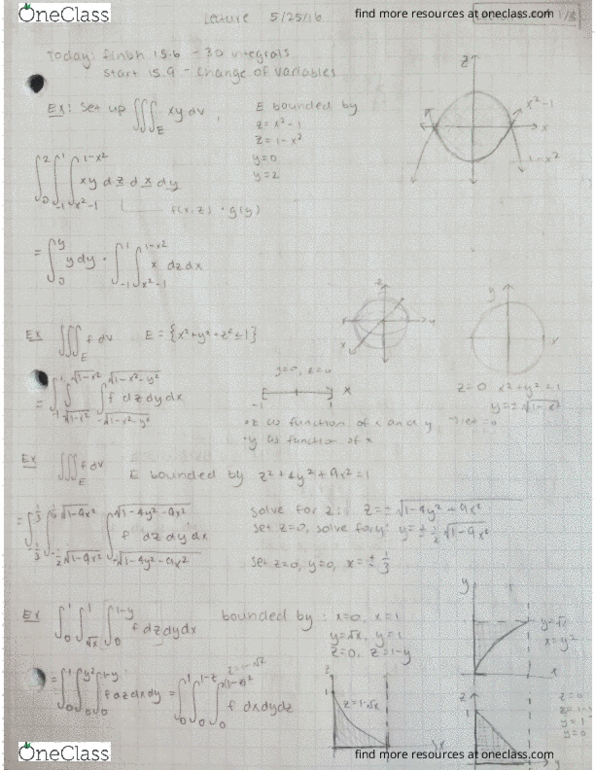 OneClass
find more resources at oneclass.com
Lecture 5/25/16
1/3
Today: finish 15.6 - 3D integrals
start 15.9 - change of variables
Ex: Set up ∭_E xy dv, E bounded by
z = x²-1
z = 1-x²
y=0
y=2
∫_0^2 ∫_-1^1 ∫_x²-1^1-x² xy dz dx dy
f(x,z) · g(y)
= ∫_0^y y dy · ∫_-1^1 ∫_x²-1^1-x² x dz dx
z
x²-1
x
1-x²
Ex ∭_E f dv E = {x²+y²+z² ≤ 1}
= ∫_-1^1 ∫_-√1-x²^√1-x² ∫_-√1-x²-y²^√1-x²-y² f dz dy dx
y=0, z=0
-1 1 x
z=0 x²+y²=1
y=±√1-x²
• z is function of x and y
• y is function of x
Ex ∭_E f dv E bounded by z²+4y²+9x²=1
= ∫_-1/3^1/3 ∫_-½√1-9x²^½√1-9x² ∫_-√1-4y²-9x²^√1-4y²-9x² f dz dy dx
solve for z: z=±√1-4y²+9x²
set z=0, solve for y: y=±½√1-9x²
set z=0, y=0, x=±1/3
Ex ∫_0^1 ∫_√x^1 ∫_0^1-y f dz dy dx bounded by: x=0, x=1
y=√x, y=1
z=0, z=1-y
y
y=√x
x=y²
x
= ∫_0^1 ∫_0^y² ∫_0^1-y f dz dx dy = ∫_0^1 ∫_0^1-z ∫_0 f dx dy dz
z=1-√x
z
z=0
y=1
y=0
OneClass
find more resources at oneclass.com